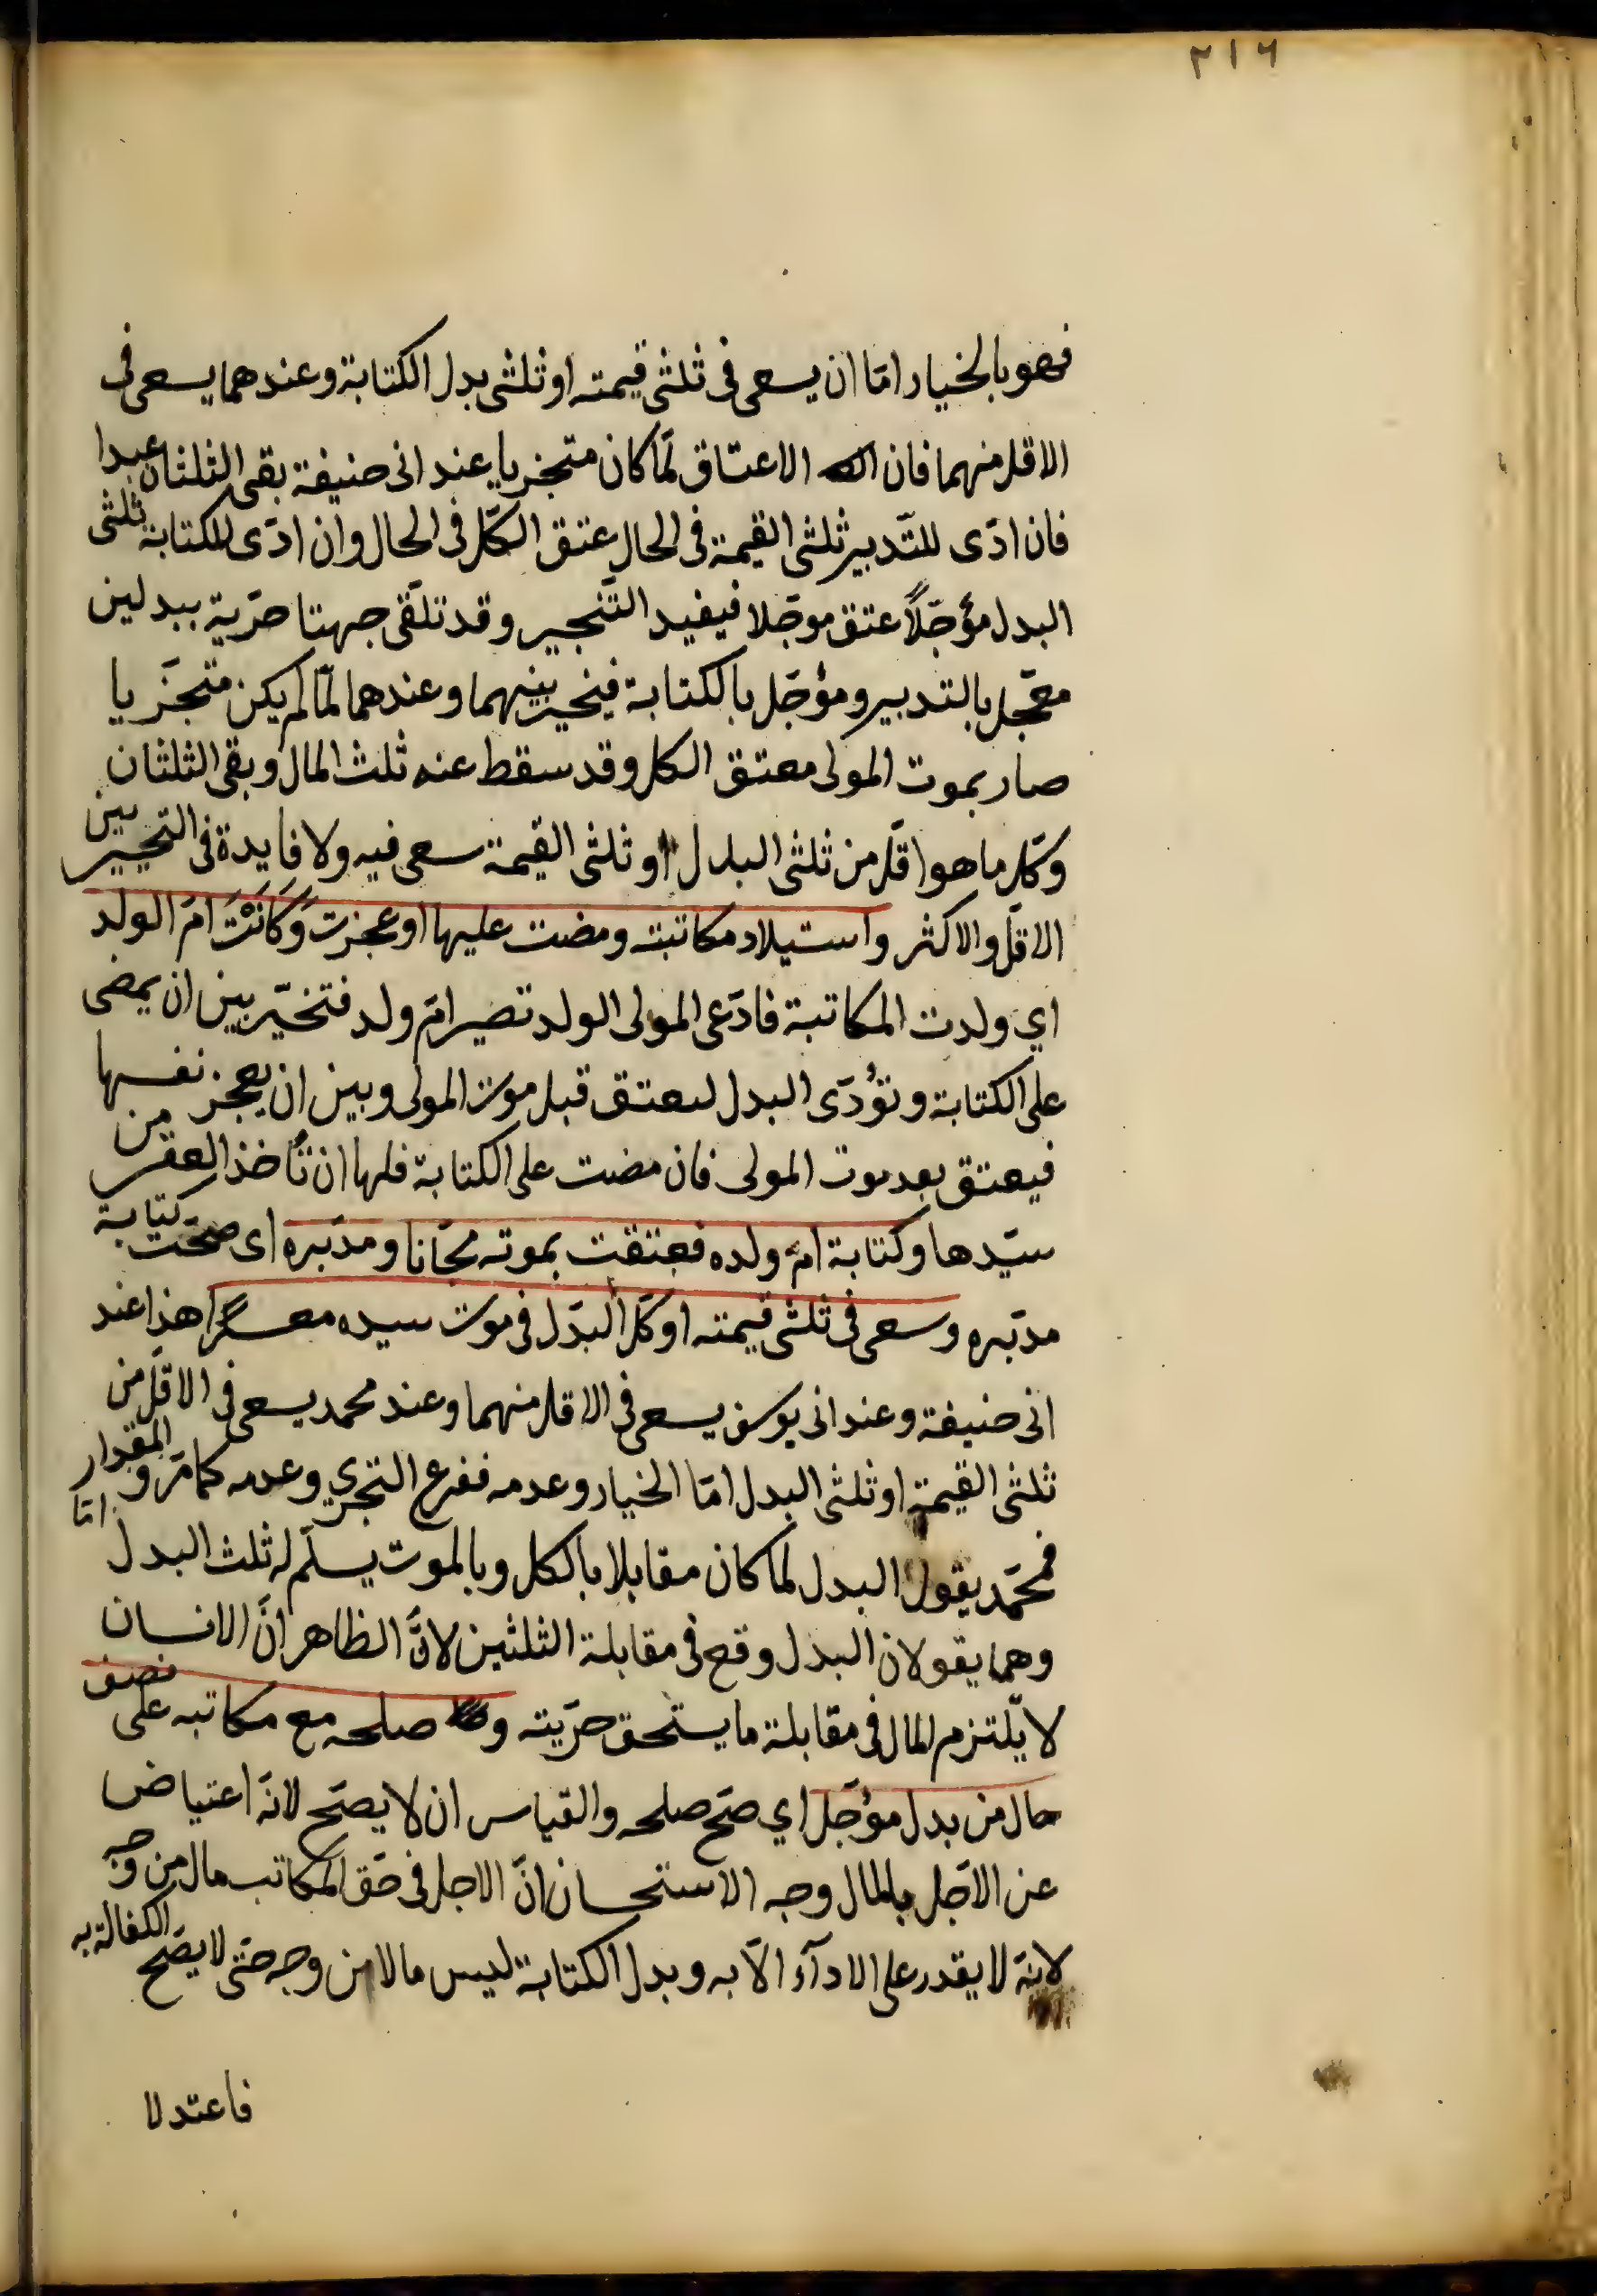 ٢١٦
فهو بالخيار امّا ان يسعى فى ثلثى قيمته او ثلثى بدل الكتابة وعندهما يسعى فى
الاقل منهما فان الاعتاق لمّا كان متجزيا عند ابى حنيفة بقى الثلثان عبدا
فان ادّى للتّدبير ثلثى القيمة فى الحال عتق الكّل فى الحال وان ادّى للكتابة ثلثى
البدل مؤجّلاً عتق موجّلا فيفيد التّخيير وقد تلقّى جهتا حرّية ببدلين
معجّل بالتدبير ومؤجّل بالكتابة فيخير بينهما وعندهما لمّا لم يكن متجزّيا
صار بموت المولى معتق الكل وقد سقط عنه ثلث المال وبقى الثلثان
وكل ما هو اقلّ من ثلثى البدل او ثلثى القيمة سعى فيه ولا فايدة فى التخيير بين
الاقلّ والاكثر واستيلاد مكاتبته ومضت عليها او عجزت وَكَانَتْ امّ الولد
اي ولدت المكاتبة فادّعى المولى الولد تصير امّ ولد فتخيّر بين ان يمضى
على الكتابة وتؤُدّى البدل لتعتق قبل موت المولى وبين ان يعجز نفسها
فيعتق بعد موت المولى فان مضت على الكتابة فلها ان تأخذ العقر من
سيّدها وكتابة امّ ولده فعتقت بموته مجّانا ومدّبره اى صحّت كتابة
مدبّره وسعى فى ثلثى قيمته او كلّ البدَل فى موت سيده معسرا هذا عند
ابى حنيفة وعند ابى يوسف يسعى فى الاقل منهما وعند محمد يسعى فى الاقلّ من
ثلثى القيمة او ثلثى البدل امّا الخيار وعدمه ففرع التجزي وعدمه كما مرّ وامّا المقدار
فمحّمد يقول البدل لما كان مقابلا بالكل وبالموت يسلّم له ثلث البدل
وهما يقولان البدل وقع فى مقابلة الثلثين لانّ الظاهر انّ الانسان
لا يلتزم المال فى مقابلة ما يستحق حرّيته و صلحه مع مكاتبه على نصف
حال من بدل مؤجّل اي صحّ صلحه والقياس ان لا يصحّ لانّه اعتياض
عن الاجل بالمال وجه الاستحسان انّ الاجل فى حقّ المكاتب مال من وجه
لانّه لا يقدر على الادآء الّا به وبدل الكتابة ليس مالا من وجه حتّى لا يصحّ الكفالة به
فاعتدلا